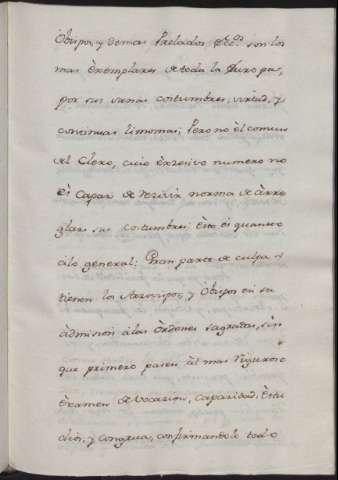 Obispos, y demas Prelados, &cᵃ. son los
mas èxemplares de toda la Èuropa,
por sus sanas costumbres, virtud, y
continuas limosnas; Pero no èl comun
del Clero, cuio èxcesivo numero no
ès capaz de recivir norma de àrre
glar sus costumbres: Èsto ès quanto
à lo general: Gran parte de culpa
tienen los Arzovispos, y Obispos en su
àdmision à las òrdenes sagradas, sin
que primero pasen àl mas riguroso
èxamen de vocacion, capacidad, Èstu
dios, y congrua, confirmandolo todo